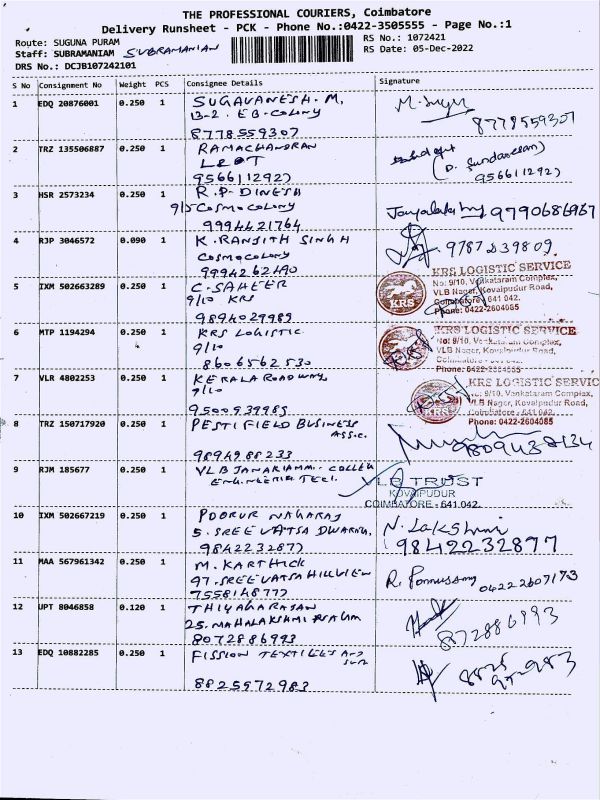 THE PROFESSIONAL COURIERS, Coimbatore
Delivery Runsheet - PCK - Phone No.:0422-3505555 - Page No.:1
Route: SUGUNA PURAM
RS No.: 1072421
Staff: SUBRAMANIAM SUBRAMANIAN
RS Date: 05-Dec-2022
DRS No.: DCJB107242101
S No Consignment No Weight PCS Consignee Details Signature
1 EDQ 20876001 0.250 1 SUGAVANESH. M,
13-2. EB-COLONY
8778559307
8778559307
2 TRZ 135506887 0.250 1 RAMACHANDRAN
(D. Sundaresan)
9566112927
9566112927
3 HSR 2573234 0.250 1 R.P. DINESH
9/5 COSMO COLONY
9790686967
9994421764
4 RJP 3046572 0.090 1 K. RANJITH SINGH
COSMO COLONY
9787239809
9994262490
5 IXM 502663289 0.250 1 C. SAHEER
9/10 KRS
9894029989
KRS
KRS LOGISTIC SERVICE
No: 9/10, Venkataram Complex,
VLB Nagar, Kovaipudur Road,
Coimbatore - 641 042.
Phone: 0422-2604085
6 MTP 1194294 0.250 1 KRS LOGISTIC
9/10
8606562530
KRS
KRS LOGISTIC SERVICE
No: 9/10, Venkataram Complex,
VLB Nagar, Kovaipudur Road,
Phone: 0422-2604085
7 VLR 4802253 0.250 1 KERALA ROADWAY,
9/10
9500939989
KRS
KRS LOGISTIC SERVIC
No: 9/10, Venkataram Complex,
VLB Nagar, Kovaipudur Road,
Coimbatore - 641 042.
Phone: 0422-2604085
8 TRZ 150717920 0.250 1 PESTIFIELD BUSINESS
ASSC.
9894288233
9 RJM 185677 0.250 1 VLB JANAKIAMM. COLLEG
VLB TRUST
KOVAIPUDUR
COIMBATORE - 641 042.
10 IXM 502667219 0.250 1 POORUR NAGARAJ
5. SREEVATSA DWARKA,
9842232877
N. Lakshmi
9842232877
11 MAA 567961342 0.250 1 M. KARTHICK
97. SREEVATSA HILLVIEW
7558148777
R. Ponnusamy 04222607173
12 UPT 8046858 0.120 1 THIYAGARAJAN
25. MAHALAKSHMI
8072886993
872886993
13 EDQ 10882285 0.250 1 FISSION TEXTILES
8825972983